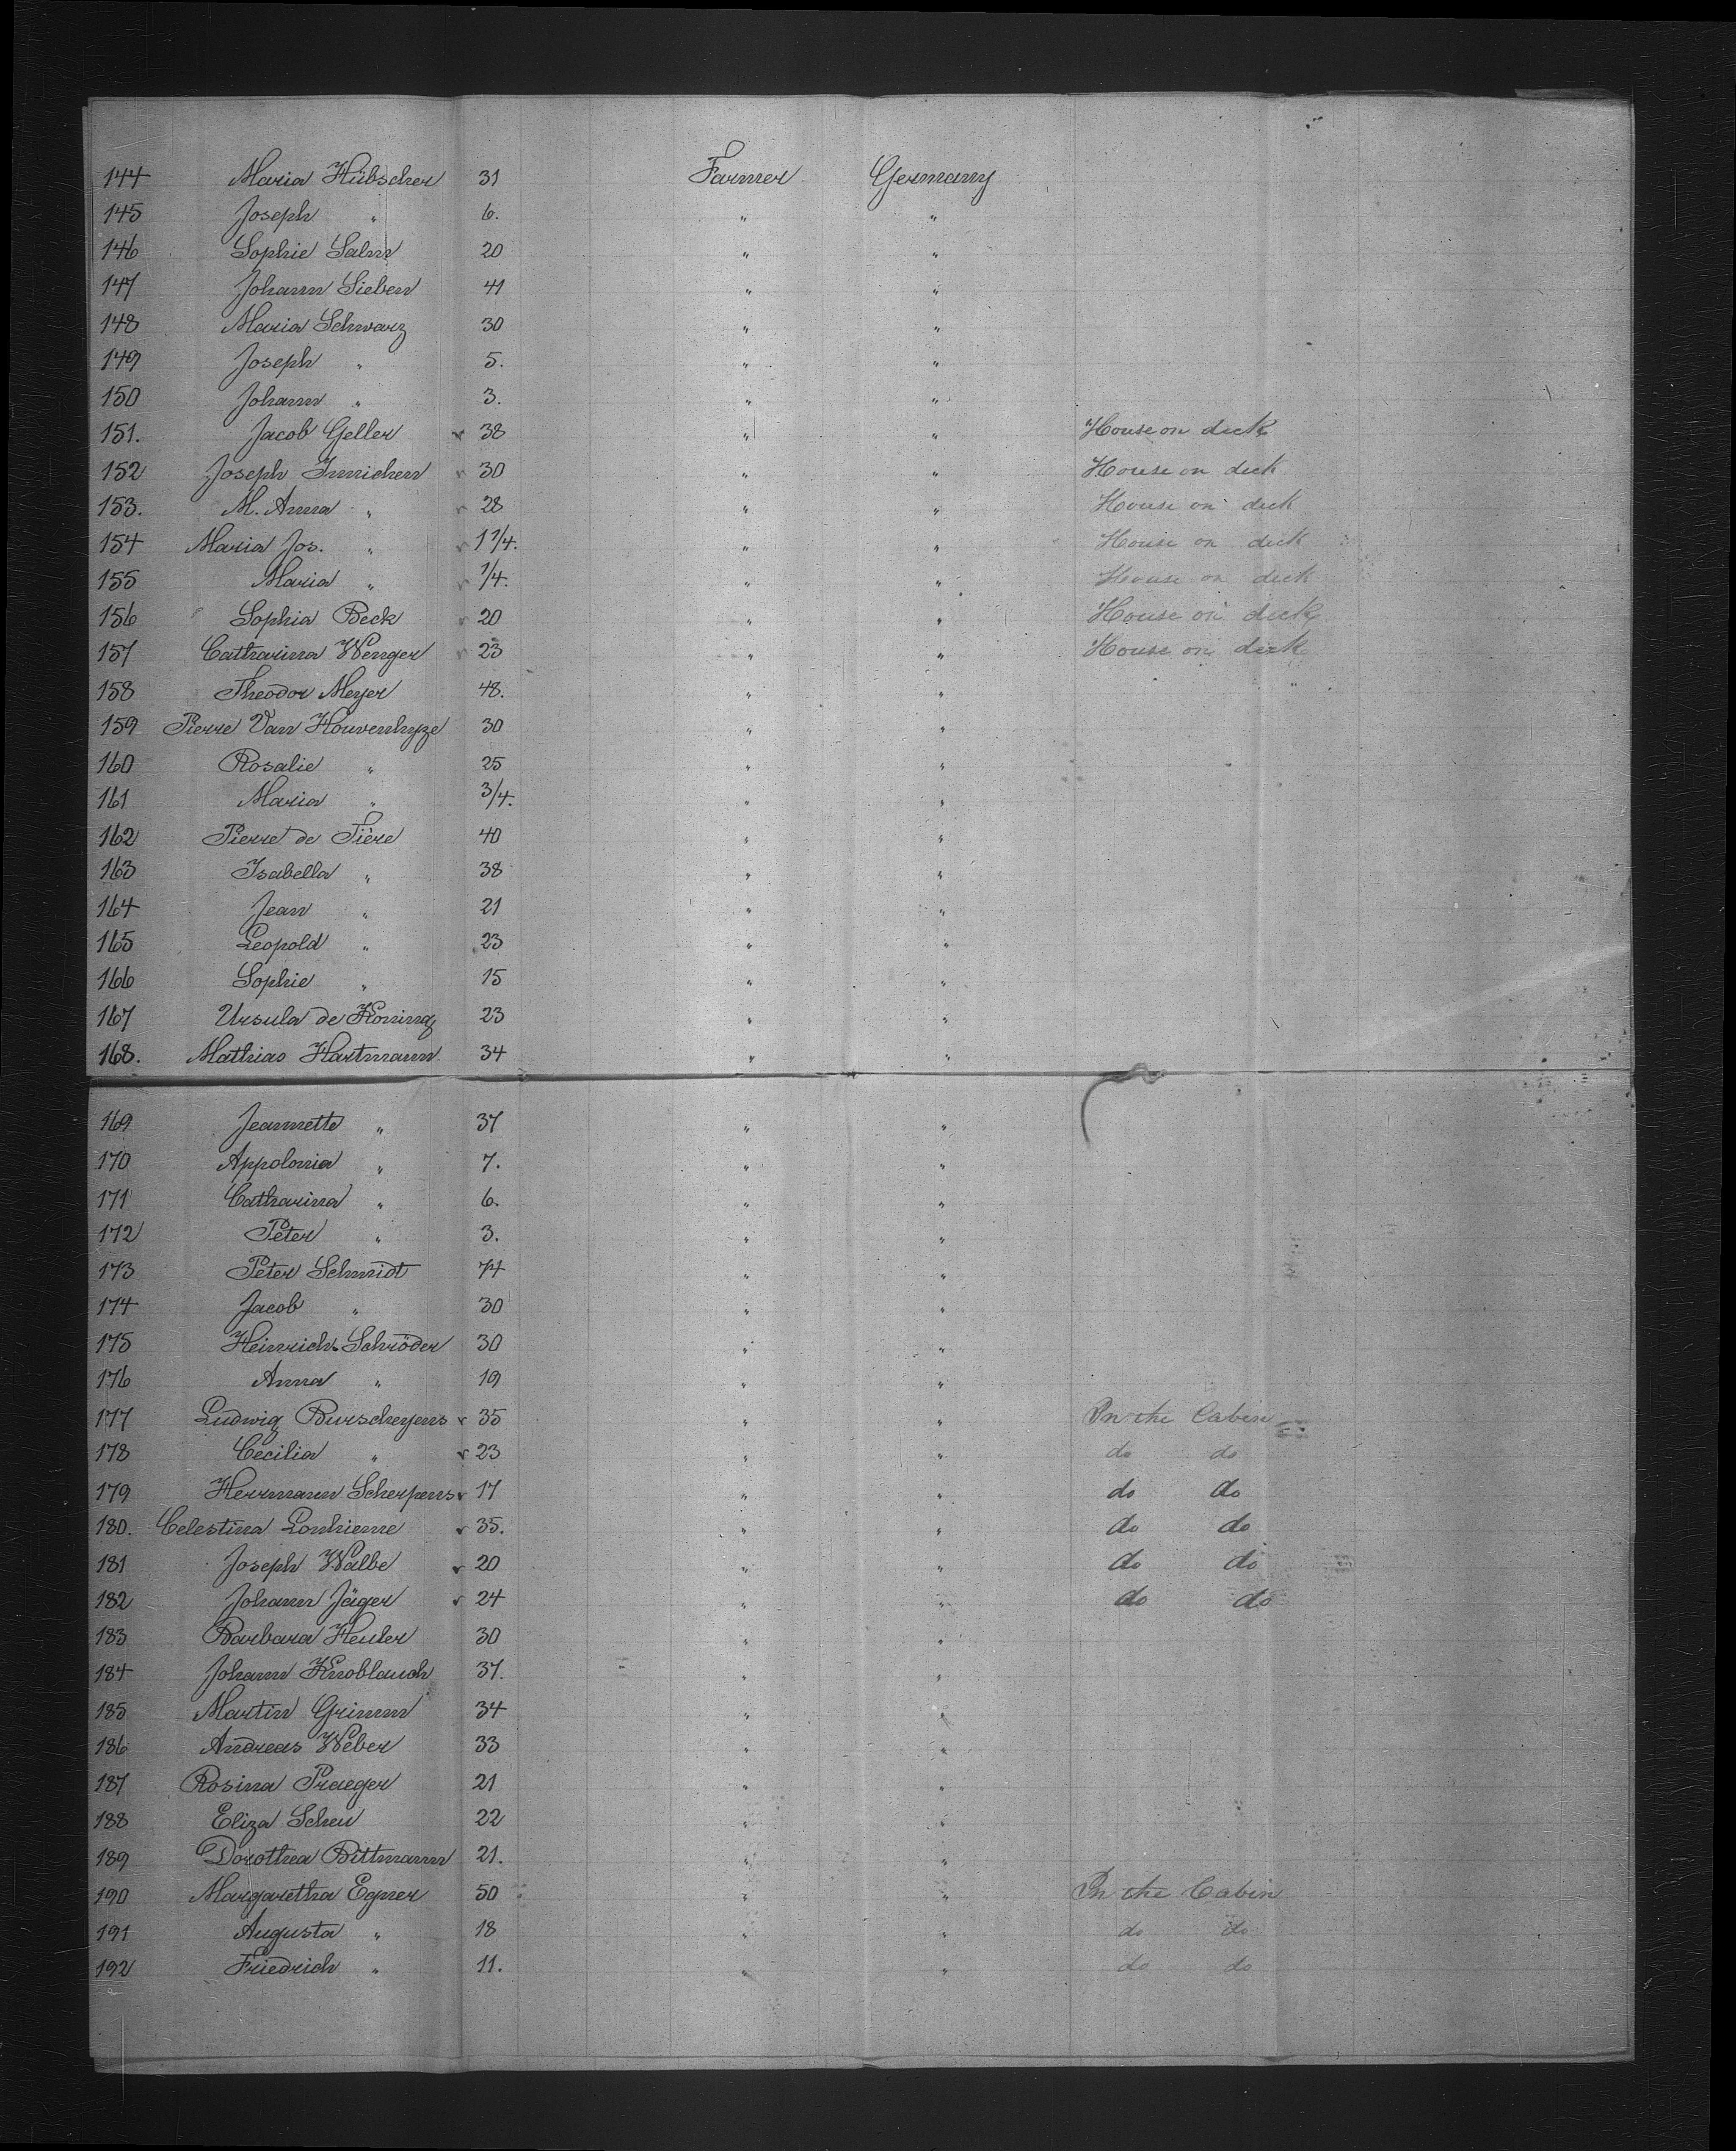 144 Maria Hübscher 31 Farmer Germany
145 Joseph " 6. " "
146 Sophie Salm 20 " "
147 Johann Sieben 41 " "
148 Maria Schwarz 30 " "
149 Joseph " 5. " "
150 Johann " 3. " "
151. Jacob Geller 38 " " House on deck
152 Joseph Immichen 30 " " House on deck
153. M. Anna " 28 " " House on deck
154 Maria Jos. " 1 1/4. " " House on deck
155 Maria " 1/4. " " House on deck
156 Sophia Beck 20 " " House on deck
157 Catharina Wenger 23 " " House on deck
158 Theodor Meyer 48. " "
159 Pierre Van Houvenhyze 30 " "
160 Rosalie " 25 " "
161 Maria " 3/4. " "
162 Pierre de Tière 40 " "
163 Isabella " 38 " "
164 Jean " 21 " "
165 Leopold " 23 " "
166 Sophie " 15 " "
167 Ursula de Koning 23 " "
168. Mathias Hartmann 34 " "
169 Jeannette " 37 " "
170 Appolonia " 7. " "
171 Catharina " 6. " "
172 Peter " 3. " "
173 Peter Schmidt 74 " "
174 Jacob " 30 " "
175 Heinrich Schröder 30 " "
176 Anna " 19 " "
177 Ludwig Burscheyens 35 " " In the Cabin
178 Cecilia " 23 " " do do
179 Herrmann Scherpens 17 " " do do
180. Celestina Lonhienne 35. " " do do
181 Joseph Walbe 20 " " do do
182 Johann Jäger 24 " " do do
183 Barbara Heuler 30 " "
184 Johann Knoblauch 37. " "
185 Martin Grimm 34 " "
186 Andreas Weber 33 " "
187 Rosina Praeger 21 " "
188 Eliza Scheu 22 " "
189 Dorothea Bittmann 21. " "
190 Margaretha Egner 50 " " In the Cabin
191 Augusta " 18 " " do do
192 Friedrich " 11. " " do do